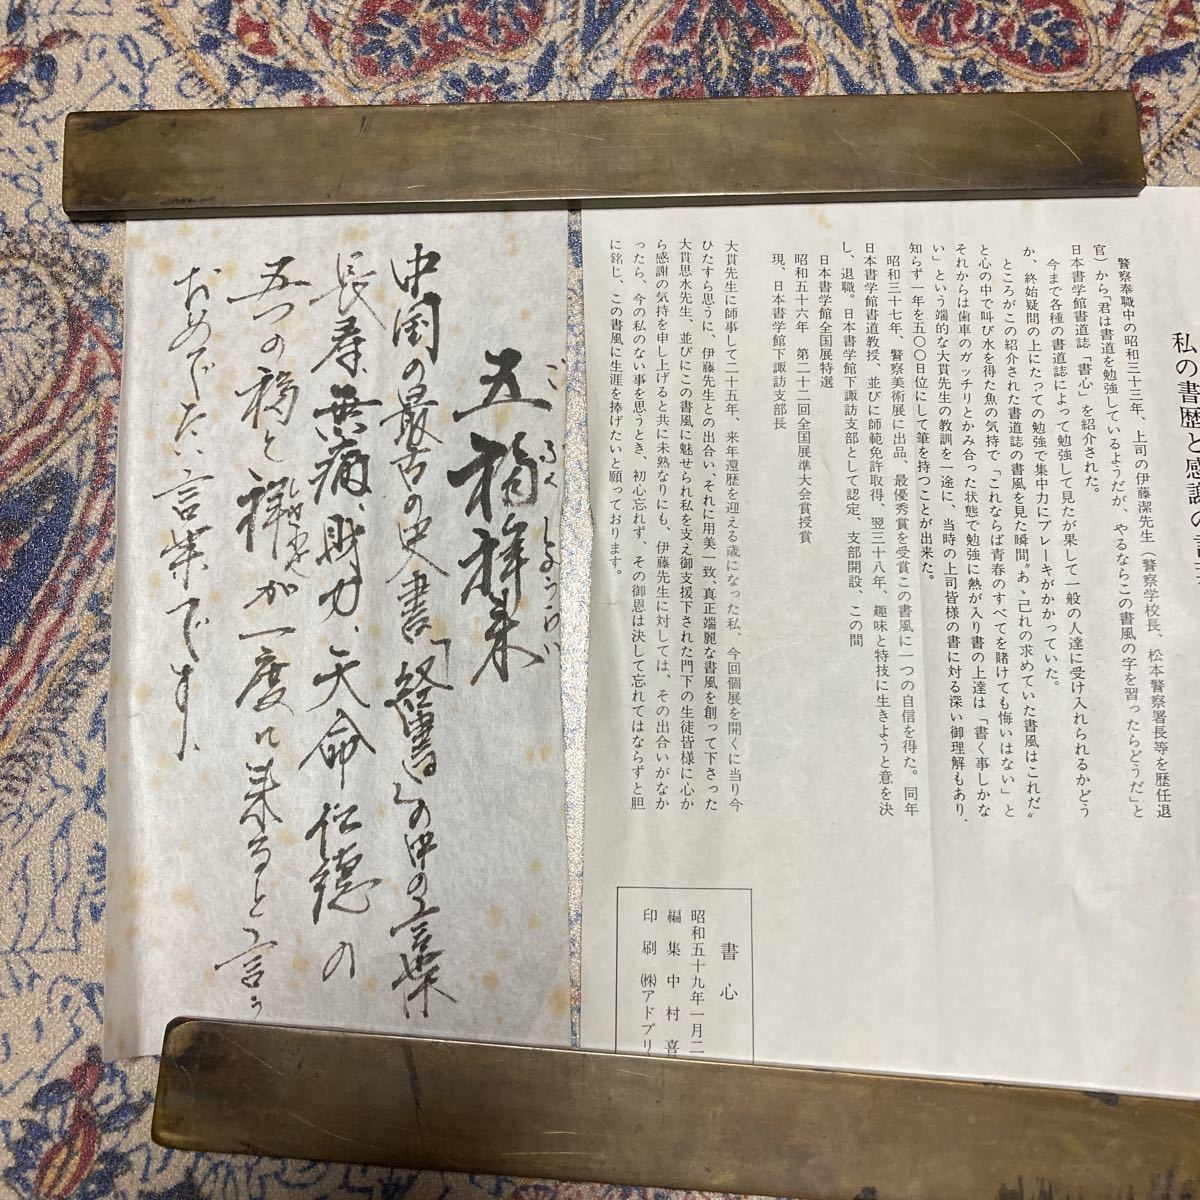 私の書歴と感謝の
警察奉職中の昭和三十三年、上司の伊藤潔先生(警察学校長、松本警察署長等を歴任退
官)から「君は書道を勉強しているようだが、やるならこの書風の字を習ったらどうだ」と
日本書学館書道誌「書心」を紹介された。
今まで各種の書道誌によって勉強して見たが果して一般の人達に受け入れられるかどう
か、終始疑問の上にたっての勉強で集中力にブレーキがかかっていた。
ところがこの紹介された書道誌の書風を見た瞬間〝あ、己れの求めていた書風はこれだ〟
と心の中で叫び水を得た魚の気持で「これならば青春のすべてを賭けても悔いはない」と
それからは歯車のガッチリとかみ合った状態で勉強に熱が入り書の上達は「書く事しかな
い」という端的な大貫先生の教訓を一途に、当時の上司皆様の書に対する深い御理解もあり、
知らず一年を五〇〇日位にして筆を持つことが出来た。
昭和三十七年、警察美術展に出品、最優秀賞を受賞この書風に一つの自信を得た。同年
日本書学館書道教授、並びに師範免許取得、翌三十八年、趣味と特技に生きようと意を決
し、退職。日本書学館下諏訪支部として認定、支部開設、この間
日本書学館全国展特選
昭和五十六年 第二十二回全国展準大会賞授賞
現、日本書学館下諏訪支部長
大貫先生に師事して二十五年、来年還歴を迎える歳になった私、今回個展を開くに当り今
ひたすら思うに、伊藤先生との出合い、それに用美一致、真正端麗な書風を創って下さった
大貫思水先生、並びにこの書風に魅せられ私を支え御支援下された門下の生徒皆様に心か
ら感謝の気持を申し上げると共に未熟なりにも、伊藤先生に対しては、その出合いがなか
ったら、今の私のない事を思うとき、初心忘れず、その御恩は決して忘れてはならずと胆
に銘じ、この書風に生涯を捧げたいと願っております。
書心
昭和五十九年一月二
編集 中村喜
印刷 ㈱アドプリ
五福祥来
ごふくしょうらい
中国の最古の史書「経書」の中の言葉
長寿、無病、財力、天命、仁徳の
五つの福と祥が一度に来ると言う
おめでたい言葉です。